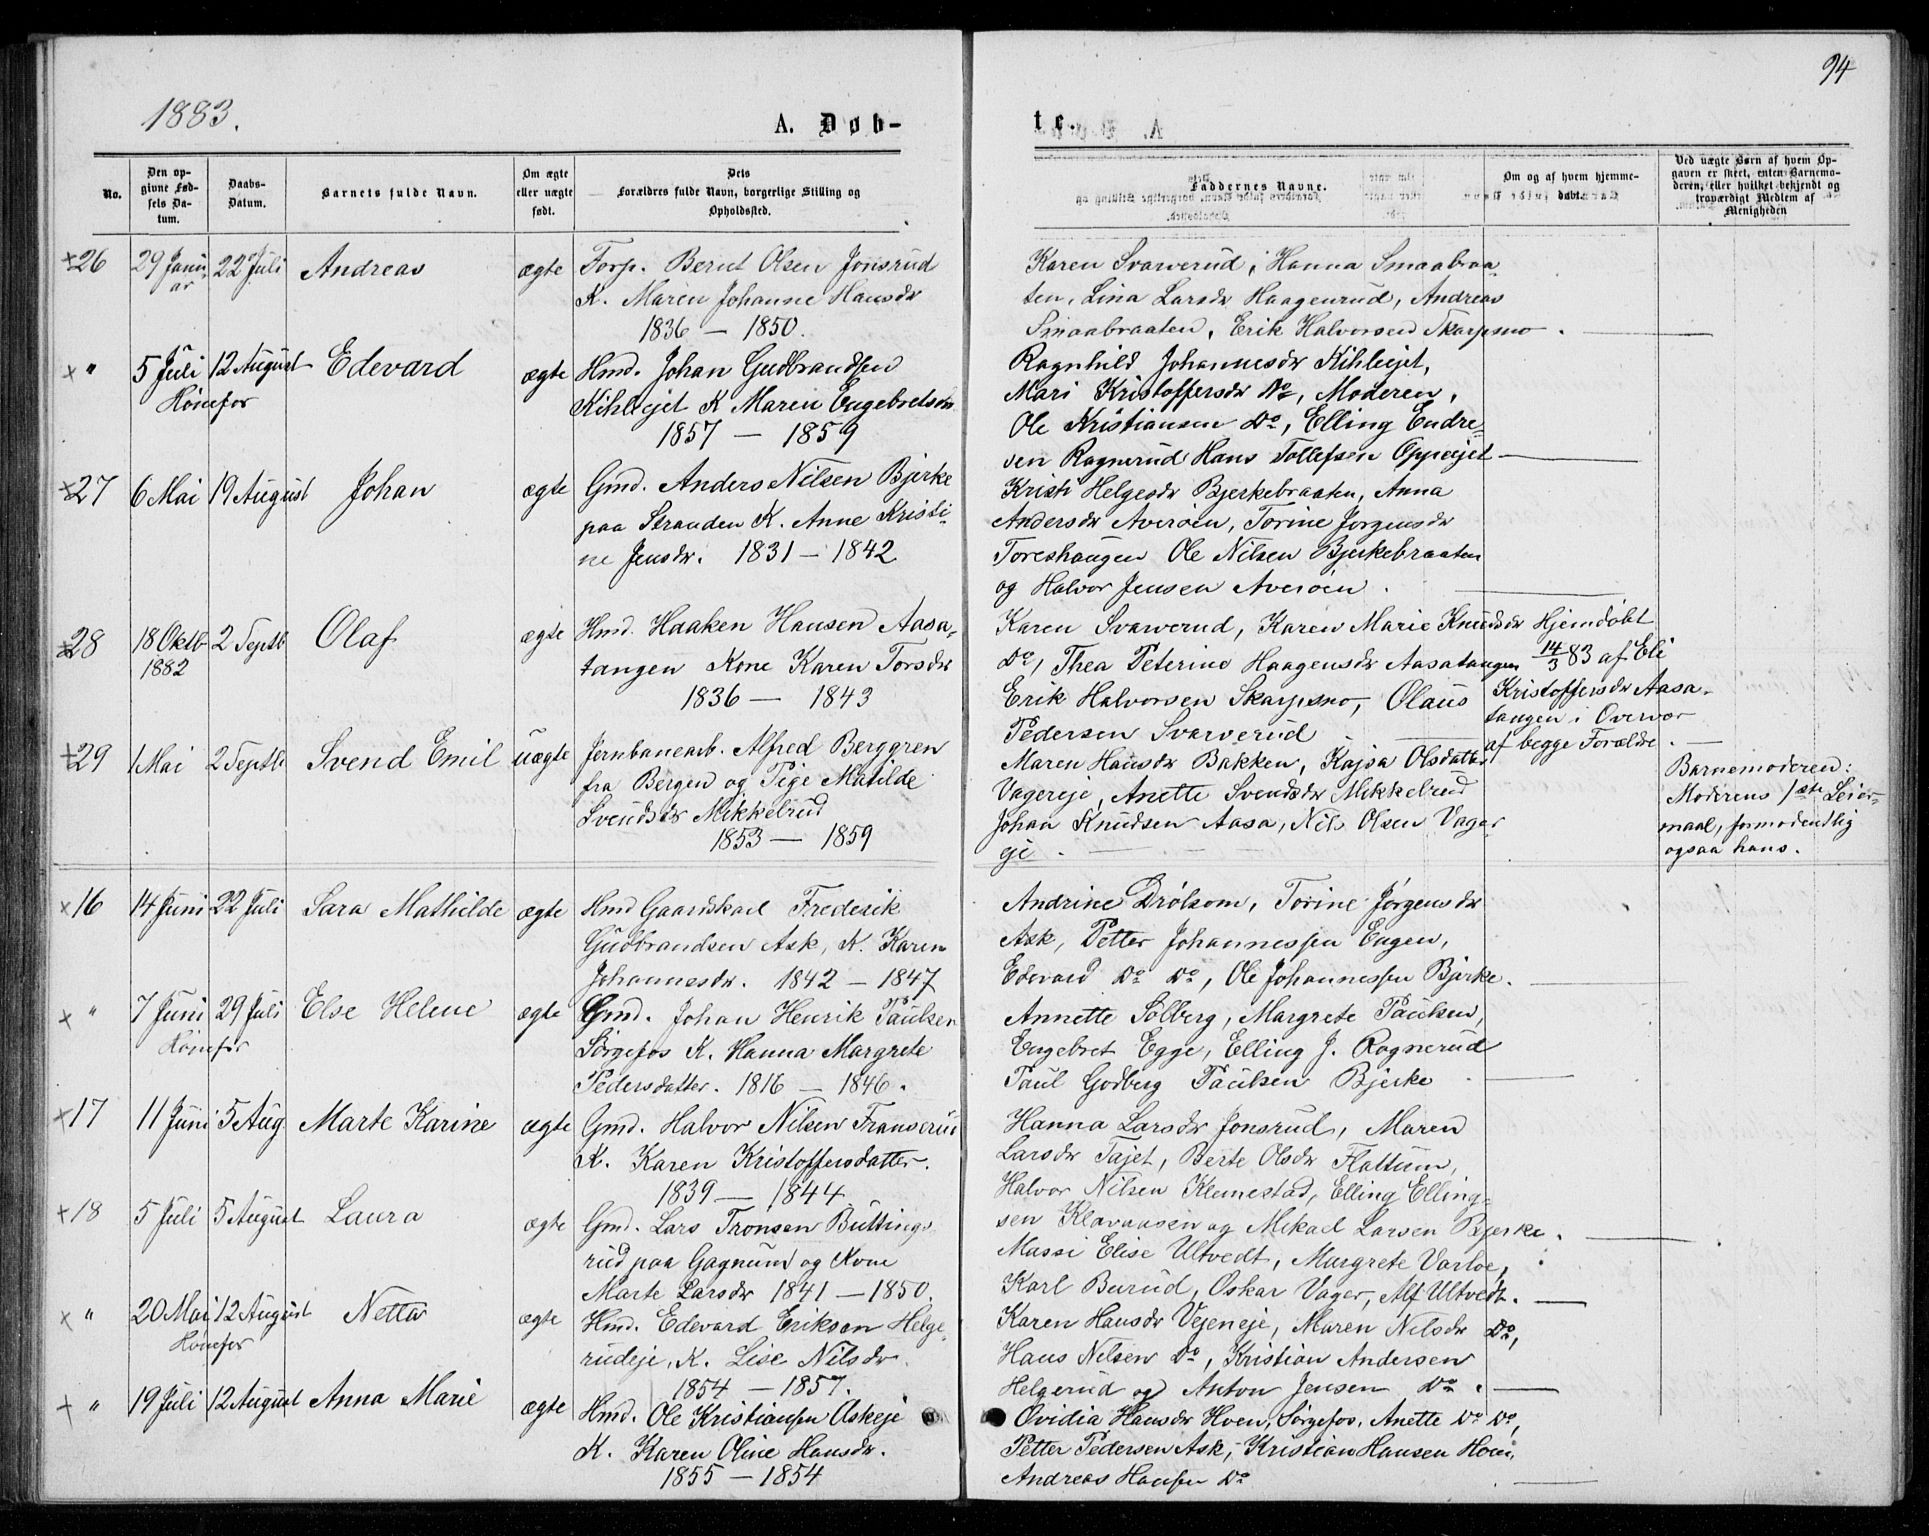 1883.
A. Døb-
No.
Den op-
givne Fød-
sels Da-
tum.
Daabs-
Datum.
Barnets fulde Navn.
Om ægte
eller uægte
født.
Dets
Forældres fulde Navn, borgerlige Stilling og
Opholdssted.
26 29 Janu- 22 Juli Andreas ægte Torp. Bernt Olsen Jonsrud
ar K. Maren Johanne Hansdr
1836 — 1850.
" 5 Juli 12 August Edevard ægte Hmd. Johan Gudbrandsen
Hønefos Kihlejet K Maren Engebretsdr
1857 — 1859
27 6 Mai 19 August Johan ægte Gmd. Anders Nilsen Bjerke
paa Stranden K. Anne Kristi-
ne Jensdr. 1831 — 1842
28 18 Oktb 2 Septb Olaf ægte Hmd. Haaken Hansen Aasa-
1882 tangen Kone Karen Torsdr
1836 — 1843
29 1 Mai 2 Septb Svend Emil uægte Jernbanearb. Alfred Berggren
fra Bergen og Pige Matilde
Svendsdr Mikkelrud
1853 — 1859
16 14 Juni 22 Juli Sara Mathilde ægte Hmd Gaardskarl Frederik
Gudbrandsen Ask, K. Karen
Johannesdr. 1842 — 1847
" 7 Juni 29 Juli Else Helene ægte Gmd. Johan Henrik Paulsen
Hønefos Sørgefos K. Hanna Margrete
Pedersdatter. 1816 — 1846.
17 11 Juni 5 Aug. Marte Karine ægte Gmd. Halvor Nilsen Fransrud
K. Karen Kristoffersdatter.
1839 — 1844
18 5 Juli 5 August Laura ægte Gmd. Lars Tronsen Buttings-
rud paa Gagnum og Kone
Marte Larsdr 1841 — 1850.
" 20 Mai 12 August Netta ægte Hmd. Edevard Eriksen Helge-
Hønefos rudeje, K. Lise Nilsdr.
1854 — 1857.
" 19 Juli 12 August Anna Marie ægte Hmd. Ole Kristiansen Askeje
K. Karen Oline Hansdr.
1855 — 1854
94
te.
Faddernes Navne.
Om og af hvem hjemme-
døbt.
Ved uægte Børn af hvem Op-
gaven er skeet, enten Barnemo-
deren, eller hvilket bekjendt og
troværdigt Medlem af
Menigheden
Karen Svarverud, Hanna Smaabraa-
ten, Lina Larsdr Haagenrud, Andreas
Smaabraaten, Erik Halvorsen Skarpsno.
Ragnhild Johannesdr Kihleiet,
Mari Kristoffersdr Do, Moderen,
Ole Kristiansen Do, Elling Endre-
sen Ragnerud Hans Tollefsen Oppeiet
Kristi Helgesdr Bjerkebraaten, Anna
Andersdr Averøen, Torine Jørgensdr
Toreshaugen Ole Nilsen Bjerkebraaten
og Halvor Jensen Averøen.
Karen Svarverud, Karen Marie Knudsdr Hjemdøbt
Do, Thea Peterine Haagensdr Aasatangen 14/3 83 af Eli
Erik Halvorsen Skarpsno, Olaus Kristoffersdr Aasa-
Pedersen Svarverud tangen i Overvær
af begge Forældre.
Maren Hansdr Bakken, Kajsa Olsdatter
Vagereje, Anette Svendsdr Mikkelrud
Johan Knudsen Aasa, Nils Olsen Vager-
eje.
Barnemoderen:
Moderens 1ste Leier-
maal, formodentlig
ogsaa hans.
Andrine Drolsom, Torine Jørgensdr
Ask, Petter Johannessen Engen,
Edevard Do Do, Ole Johannessen Bjerke.
Annette Solberg, Margrete Paulsen,
Engebret Egge, Elling J. Ragnerud
Paul Godberg Paulsen Bjerke
Hanna Larsdr Jonsrud, Maren
Larsdr Tajet, Berte Olsdr Flattum,
Halvor Nilsen Klemestad, Elling Elling-
sen Klavaasen og Mikael Larsen Bjerke.
Massi Elise Ultvedt, Margrete Varloe,
Karl Burud, Oskar Vager, Alf Ultvedt.
Karen Hansdr Vejeneje, Maren Nilsdr Do,
Hans Nelsen Do, Kristian Andersen
Helgerud og Anton Jensen Do.
Ovidia Hansdr Hven, Sørgefos, Anette Do Do,
Petter Pedersen Ask, Kristian Hansen Hven,
Andreas Hansen Do